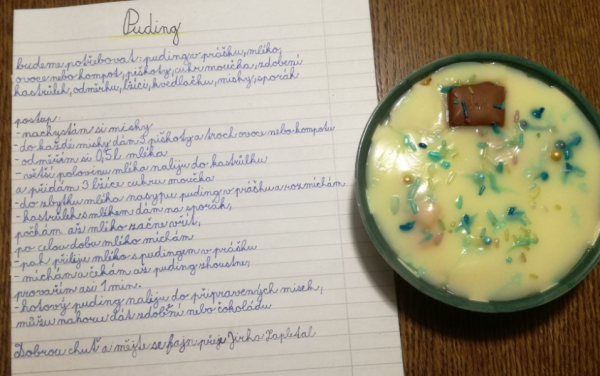 Puding
budeme potřebovat: puding v prášku, mléko,
ovoce nebo kompot, piškoty, cukr moučka, zdobení
kastrůlek, odměrku, lžíci, kvedlačku, misky, sporák
postup:
- nachystám si misky
- do každé misky dám 5 piškotů a troch ovoce nebo kompotu
- odměřím si 0,5 l mléka
- větší polovinu mléka naliju do kastrůlku
a přidám 3 lžíce cukru moučka
- do zbytku mléka nasypu puding v prášku a rozmíchám
- kastrůlek s mlékem dám na sporák,
počkám až mléko začne vřít,
po celou dobu mléko míchám
- pak přileju mléko s pudingem v prášku
- míchám a čekám až puding zhoustne,
provařím asi 1 min.
- hotový puding naleju do připravených misek,
můžu nahoru dát zdobení nebo čokoládu
Dobrou chuť a mějte se fajn přeje Jirka Zapletal